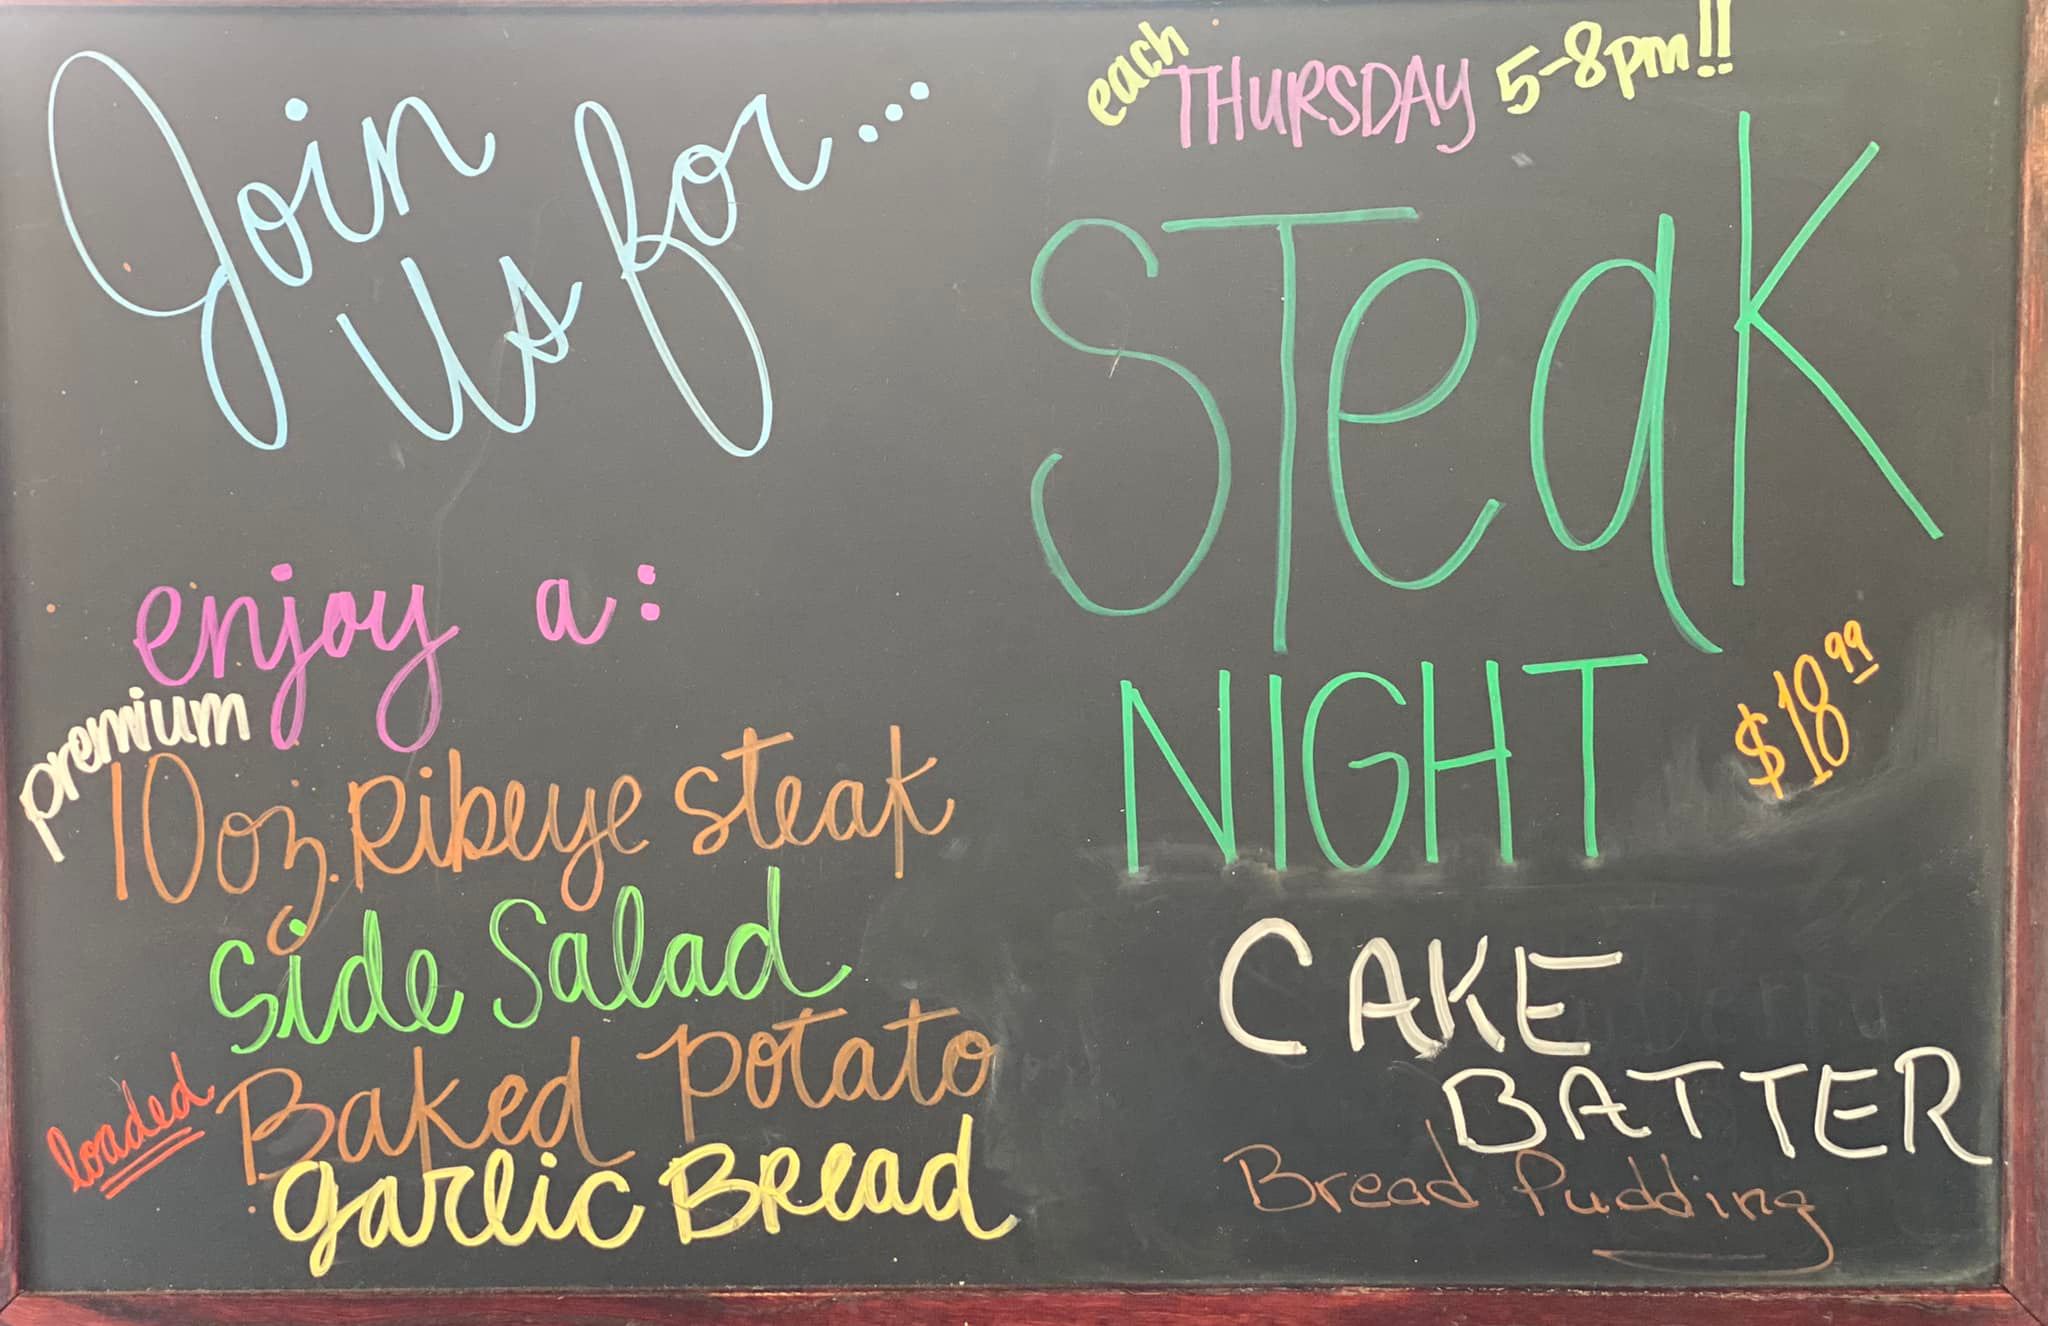 Join
us for...
enjoy a:
premium
10oz. Ribeye steak
Side Salad
loaded Baked Potato
garlic Bread
each THURSDAY 5-8pm!!
STeaK
NIGHT $18.99
CAKE
BATTER
Bread Pudding